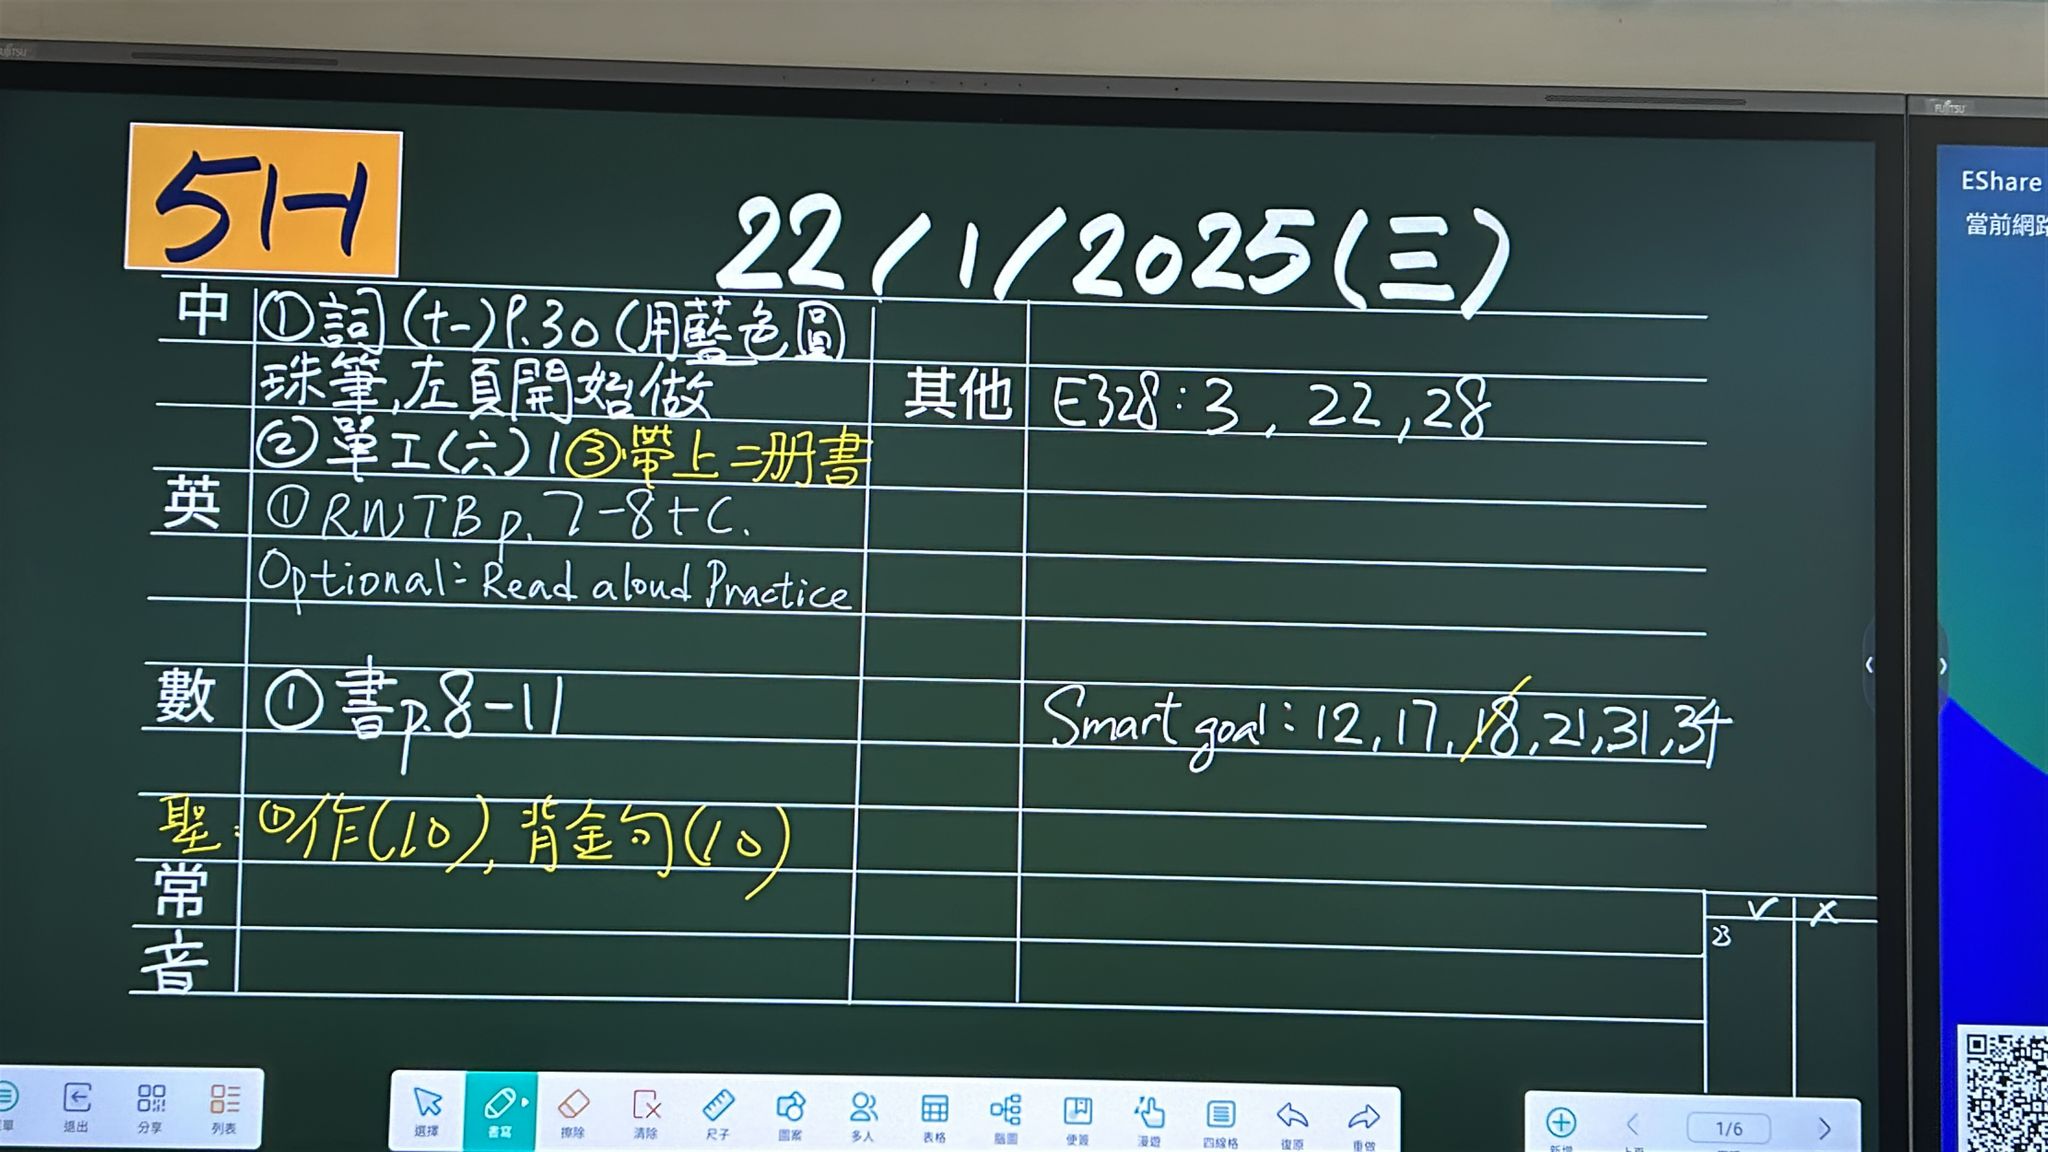 FUJITSU
FUJITSU
5H
22/1/2025(三)
中 ①詞(十一)P.30(用藍色圓
珠筆,左頁開始做
②單工(六)1③帶上二册書
英 ①RWTB p. 7-8+C.
Optional: Read aloud Practice
數 ①書p.8-11
聖: ①作(10), 背金句(10)
常
音
其他 E328: 3, 22, 28
Smart goal: 12, 17, 18, 21, 31, 34
✓ X
23
EShare
當前網路
退出 分享 列表
選擇 書寫 擦除 清除 尺子 圖案 多人 表格 腦圖 便簽 漫遊 四線格 復原 重做
新增 1/6